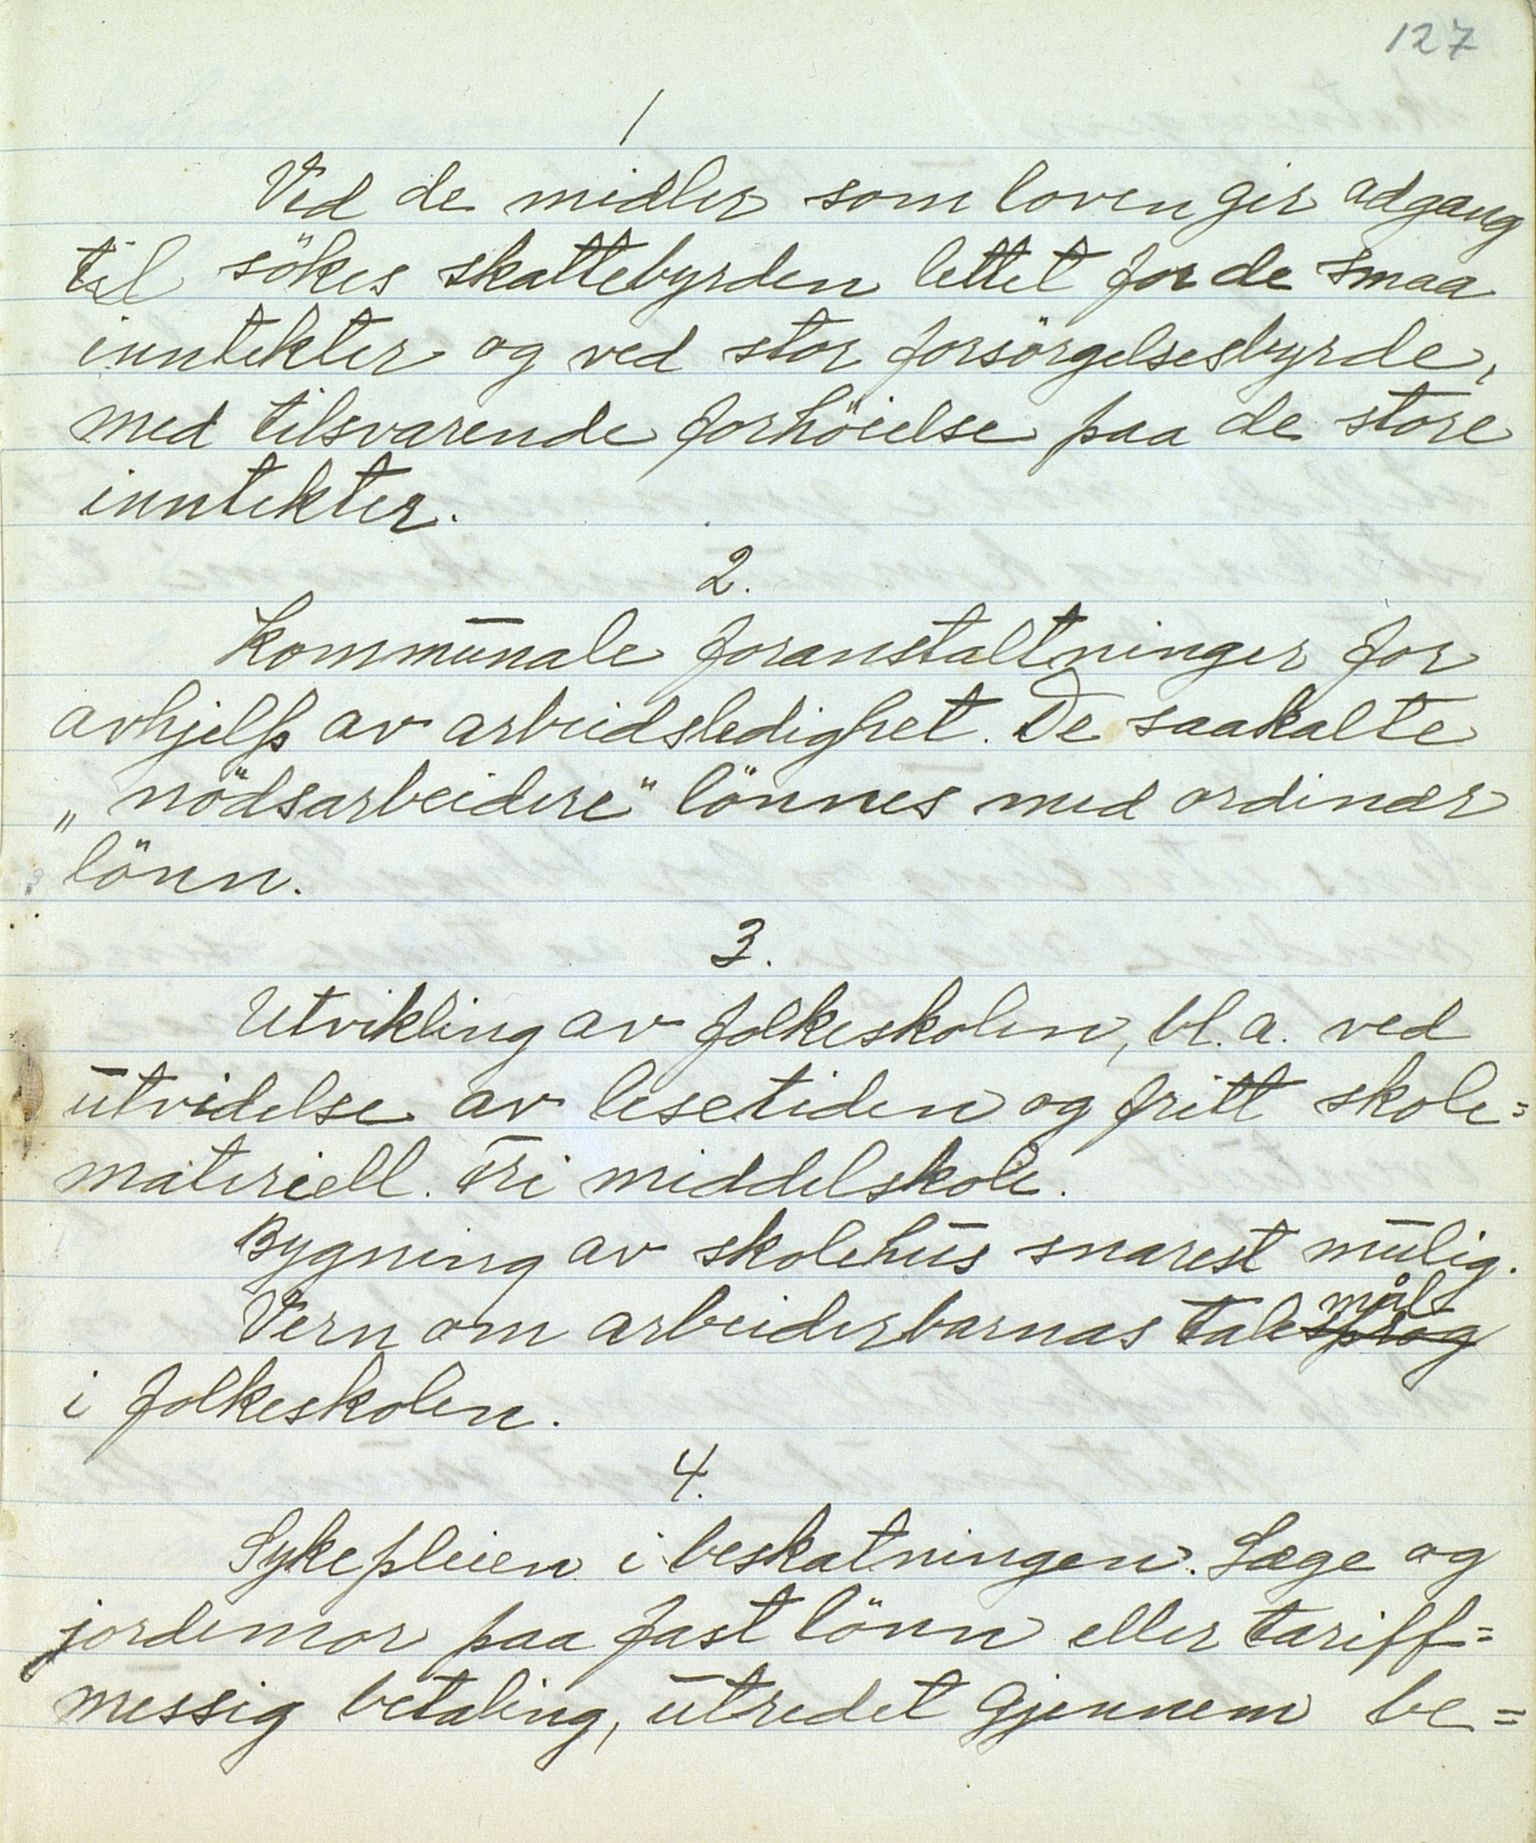 127
1
Ved de midler som loven gir adgang
til sökes skattebyrden lettet for de smaa
inntekter og ved stor forsörgelsesbyrde,
med tilsvarende forhöielse paa de store
inntekter.
2.
Kommunale foranstaltninger for
avhjelp av arbeidsledighet. De saakalte
„nödsarbeidere" lönnes med ordinær
lönn.
3.
Utvikling av folkeskolen, bl.a. ved
utvidelse av lesetiden og fritt skole=
materiell. Fri middelskole.
Bygning av skolehus snarest mulig.
mål
Vern om arbeiderbarnas talesprog
i folkeskolen.
4.
Sykepleien i beskatningen. Læge og
jordemor paa fast lönn eller tariff=
messig betaling, utredet gjennem be=